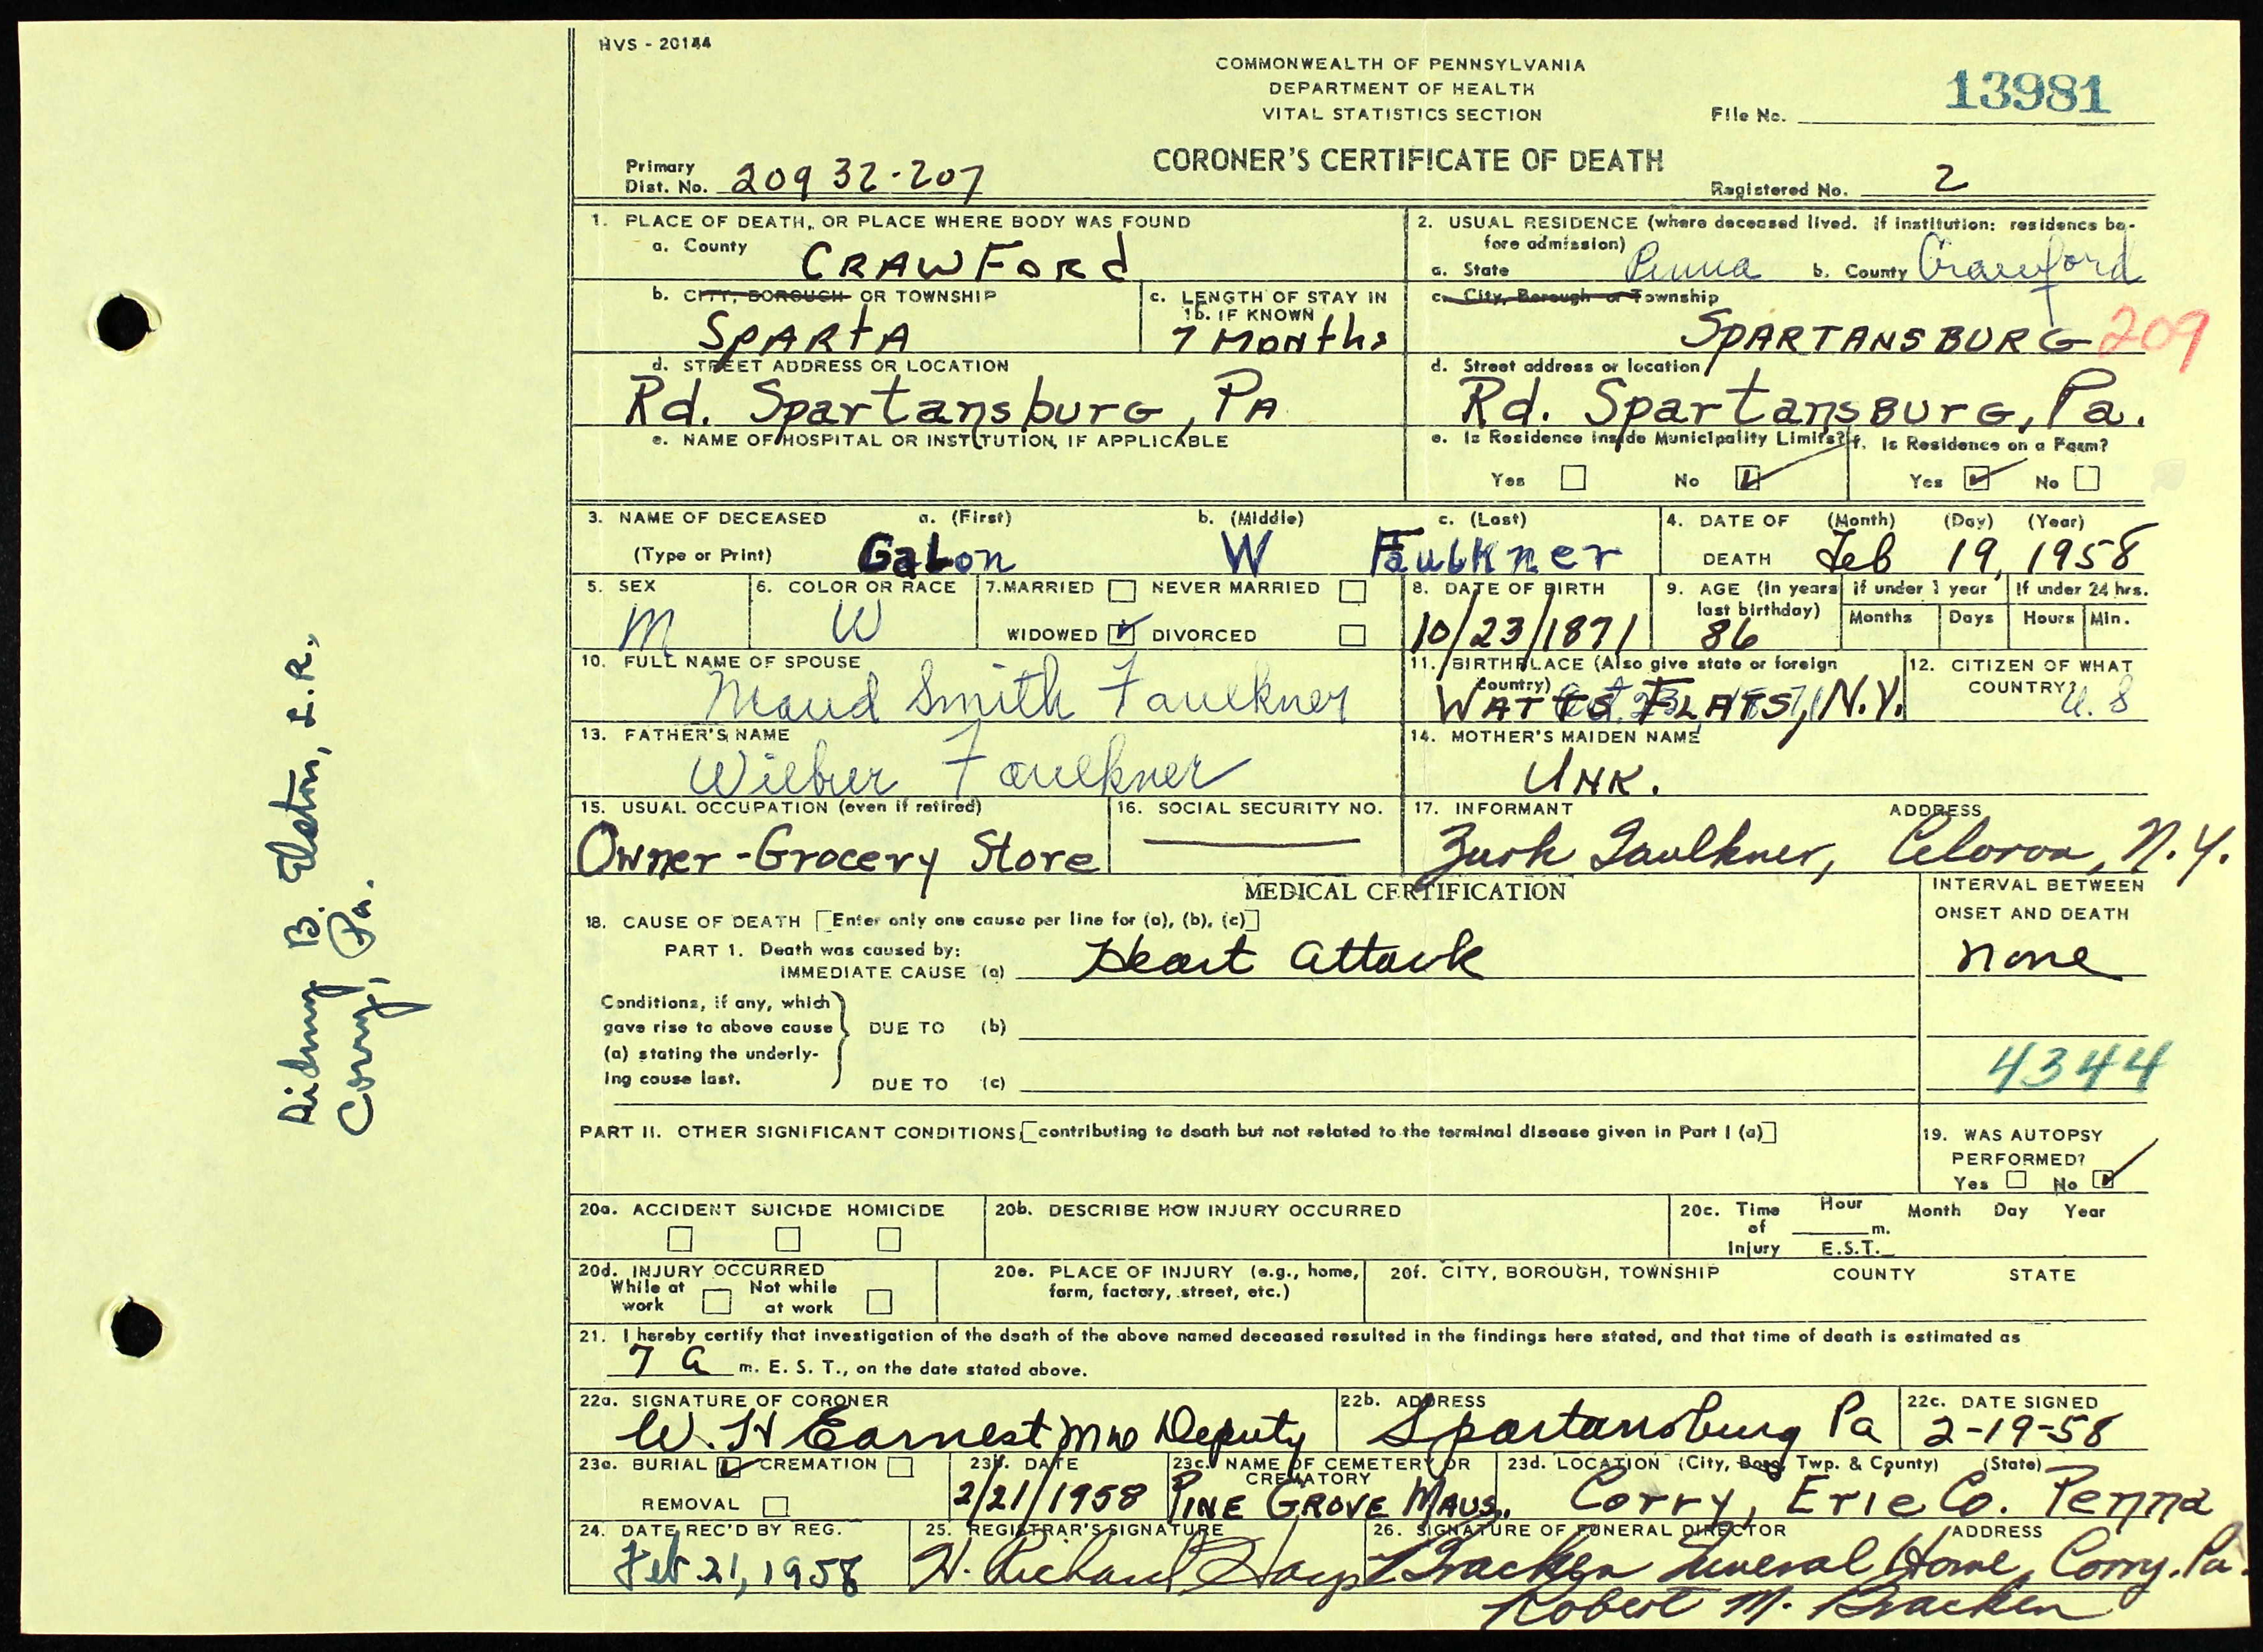 HVS - 20144
COMMONWEALTH OF PENNSYLVANIA
DEPARTMENT OF HEALTH
VITAL STATISTICS SECTION
File No. 13981
CORONER'S CERTIFICATE OF DEATH
Primary
Dist. No. 209 32-207
Registered No. 2
1. PLACE OF DEATH, OR PLACE WHERE BODY WAS FOUND
a. County CRAWFORd
2. USUAL RESIDENCE (where deceased lived. If institution: residence be-
fore admission)
a. State Penna b. County Crawford
b. CITY, BOROUGH OR TOWNSHIP
SPARtA
c. LENGTH OF STAY IN
1b. IF KNOWN
7 Months
c. City, Borough or Township
SPARTANSBURG 209
d. STREET ADDRESS OR LOCATION
Rd. Spartansburg, PA
d. Street address or location
Rd. SpartansBurG, Pa.
e. NAME OF HOSPITAL OR INSTITUTION, IF APPLICABLE
e. Is Residence inside Municipality Limits?
Yes No
f. Is Residence on a Farm?
Yes No
3. NAME OF DECEASED a. (First) b. (Middle) c. (Last)
(Type or Print) Galon W Faulkner
4. DATE OF (Month) (Day) (Year)
DEATH Feb 19, 1958
5. SEX
M
6. COLOR OR RACE
W
7. MARRIED NEVER MARRIED
WIDOWED DIVORCED
8. DATE OF BIRTH
10/23/1871
9. AGE (In years
last birthday)
86
If under 1 year
Months Days
If under 24 hrs.
Hours Min.
10. FULL NAME OF SPOUSE
Maud Smith Faulkner
11. BIRTHPLACE (Also give state or foreign
country)
WATTS FLATS, N.Y.
12. CITIZEN OF WHAT
COUNTRY?
U.S
13. FATHER'S NAME
Wilbur Faulkner
14. MOTHER'S MAIDEN NAME
UNK.
15. USUAL OCCUPATION (even if retired)
Owner-Grocery Store
16. SOCIAL SECURITY NO.
17. INFORMANT ADDRESS
Faulkner, Celoron, N.Y.
MEDICAL CERTIFICATION
INTERVAL BETWEEN
ONSET AND DEATH
18. CAUSE OF DEATH [Enter only one cause per line for (a), (b), (c)]
PART 1. Death was caused by:
IMMEDIATE CAUSE (a) Heart attack
none
Conditions, if any, which
gave rise to above cause
(a) stating the underly-
ing cause last.
DUE TO (b)
DUE TO (c)
4344
PART II. OTHER SIGNIFICANT CONDITIONS [contributing to death but not related to the terminal disease given in Part I (a)]
19. WAS AUTOPSY
PERFORMED?
Yes No
20a. ACCIDENT SUICIDE HOMICIDE
20b. DESCRIBE HOW INJURY OCCURRED
20c. Time
of
Injury
Hour Month Day Year
m.
E.S.T.
20d. INJURY OCCURRED
While at
work
Not while
at work
20e. PLACE OF INJURY (e.g., home,
farm, factory, street, etc.)
20f. CITY, BOROUGH, TOWNSHIP COUNTY STATE
21. I hereby certify that investigation of the death of the above named deceased resulted in the findings here stated, and that time of death is estimated as
7 a m. E. S. T., on the date stated above.
22a. SIGNATURE OF CORONER
W. H Earnest MD Deputy
22b. ADDRESS
Spartansburg Pa
22c. DATE SIGNED
2-19-58
23a. BURIAL CREMATION
REMOVAL
23b. DATE
2/21/1958
23c. NAME OF CEMETERY OR
CREMATORY
PINE GROVE MAUS.
23d. LOCATION (City, Boro, Twp. & County) (State)
Corry, Erie Co. Penna
24. DATE REC'D BY REG.
Feb 21, 1958
25. REGISTRAR'S SIGNATURE
H. Richard
26. SIGNATURE OF FUNERAL DIRECTOR ADDRESS
Bracken Funeral Home, Corry, Pa.
Robert M. Bracken
B. Elston, L.R.,
Corry, Pa.